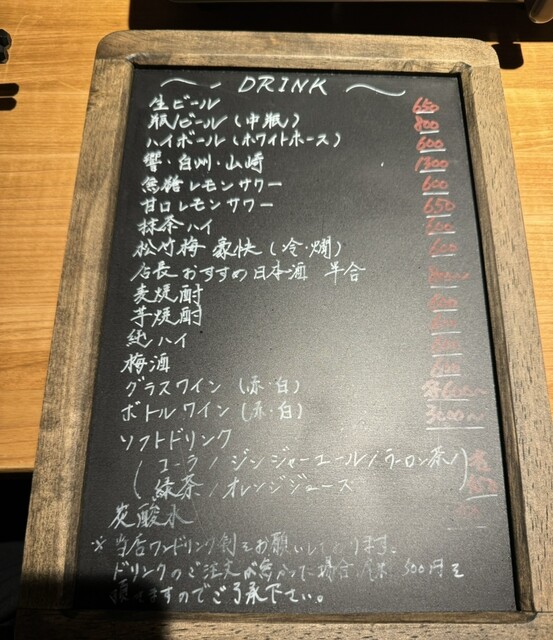 DRINK
生ビール 650
瓶ビール（中瓶） 800
ハイボール（ホワイトホース） 600
響・白州・山崎 1300
無糖レモンサワー 600
甘口レモンサワー 650
抹茶ハイ 600
松竹梅 豪快（冷・燗） 600
店長おすすめ日本酒 半合 800〜
麦焼酎 600
芋焼酎 600
純ハイ
梅酒 600
グラスワイン（赤・白） 各600〜
ボトルワイン（赤・白） 3000〜
ソフトドリンク
（コーラ / ジンジャーエール / ウーロン茶 / 各
緑茶 / オレンジジュース）
炭酸水
※ 当店ワンドリンク制をお願いしております。
ドリンクのご注文が無かった場合 300円を
頂きますのでご了承下さい。